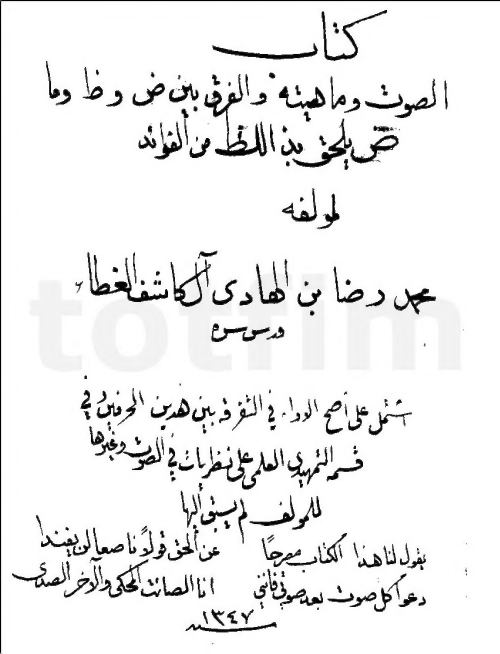 كتاب
الصوت وماهيته والفرق بين ض و ظ وما
يلحق بذلك من الفوائد
لمولفه
محمد رضا بن الهادى آل كاشف الغطاء
قدس سره
اشتمل على أصح الاراء في التفرقه بين هذين الحرفين وفي
قسمه التمهيدي العلمي على نظريات في الصوت وغيرها
للمولف لم يسبق إليها
يقول لنا هذا الكتاب مصرحا عن الحق قولاً ناصعا لن يفندا
دعوا كل صوت بعد صوتي فانني انا الصائت المحكي والآخر الصدى
١٣٤٧
totfim